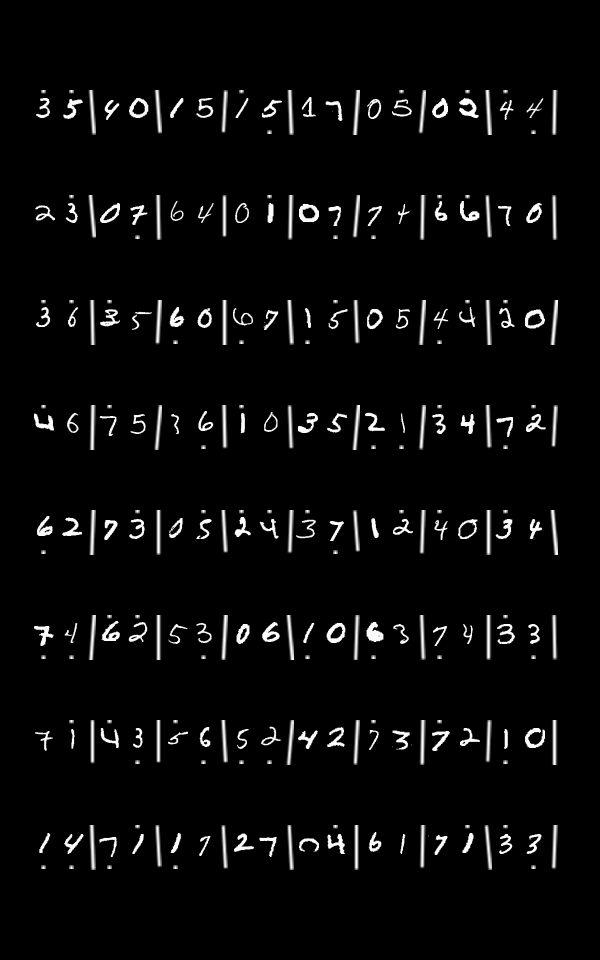 3 5 | 4 0 | 1 5 | 1 5 | 1 7 | 0 5 | 0 2 | 4 4 |
2 3 | 0 7 | 6 4 | 0 1 | 0 7 | 7 4 | 6 6 | 7 0 |
3 6 | 3 5 | 6 0 | 6 7 | 1 5 | 0 5 | 4 4 | 2 0 |
4 6 | 7 5 | 3 6 | 1 0 | 3 5 | 2 1 | 3 4 | 7 2 |
6 2 | 7 3 | 0 5 | 2 4 | 3 7 | 1 2 | 4 0 | 3 4 |
7 4 | 6 2 | 5 3 | 0 6 | 1 0 | 6 3 | 7 4 | 3 3 |
7 1 | 4 3 | 5 6 | 5 2 | 4 2 | 7 3 | 7 2 | 1 0 |
1 4 | 7 1 | 1 7 | 2 7 | 0 4 | 6 1 | 7 1 | 3 3 |